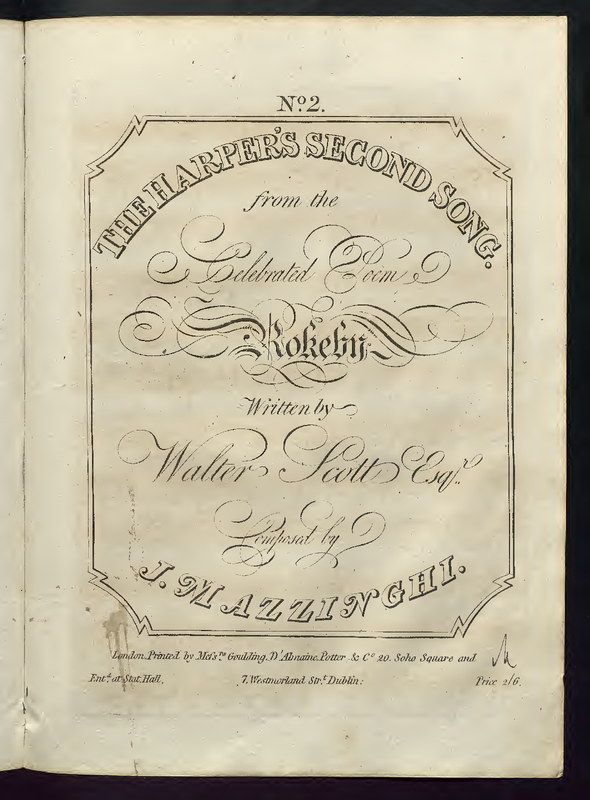 No. 2.
THE HARPER'S SECOND SONG.
from the
Celebrated Poem
Rokeby
Written by
Walter Scott Esqr.
Composed by
J. MAZZINGHI.
London. Printed by Mefsrs. Goulding, D'Almaine, Potter & Co. 20. Soho Square and
Entd. at Stat. Hall. 7. Westmorland Strt. Dublin: Price 2/6.